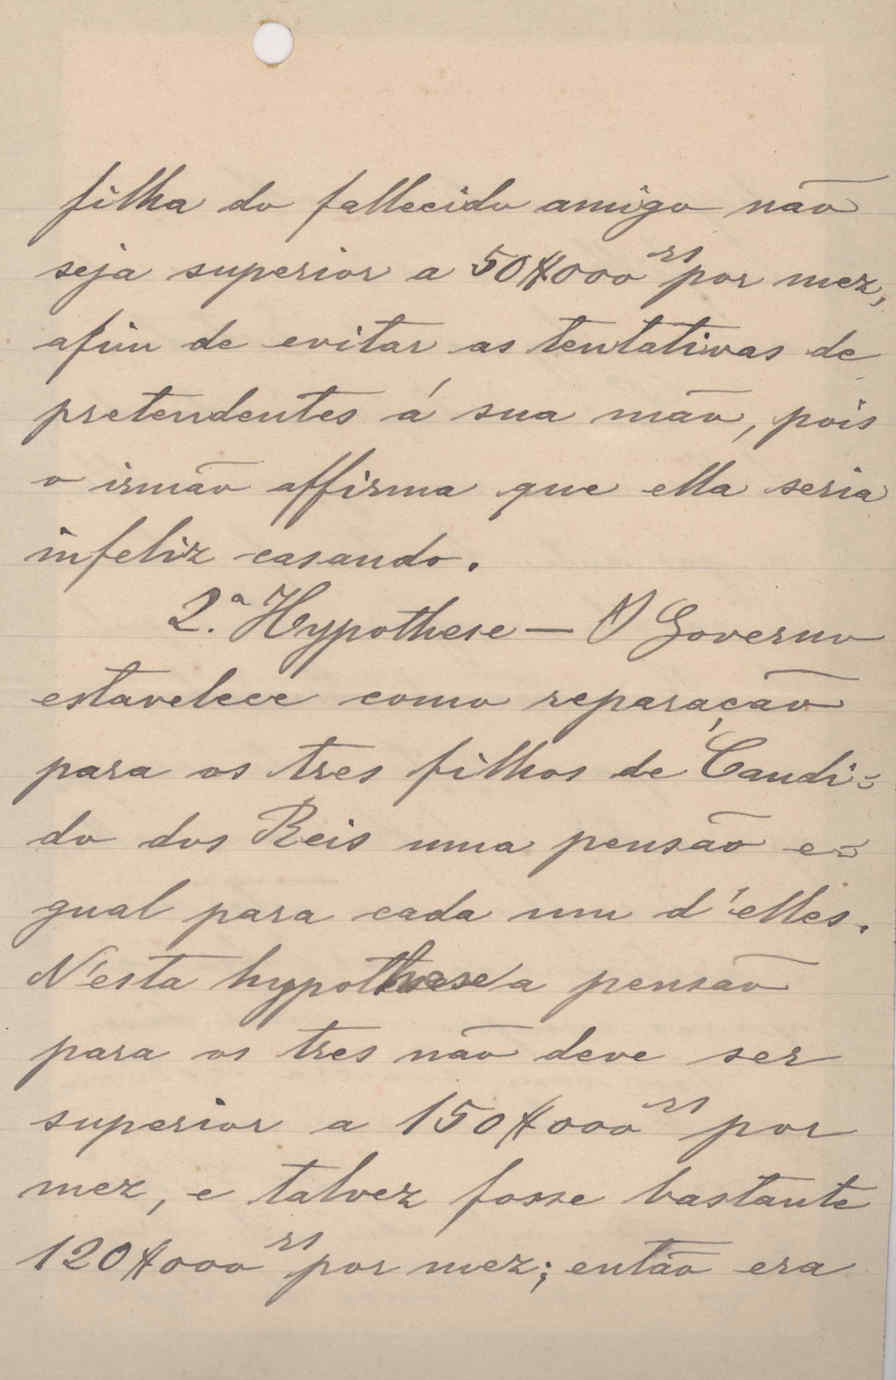 filha do fallecido amigo não
seja superior a 50$000 rs por mez,
afim de evitar as tentativas de
pretendentes á sua mão, pois
o irmão affirma que ella seria
infeliz casando.
2.ª Hypothese — O Governo
estavelece como reparação
para os tres filhos de Candi-
do dos Reis uma pensão e-
gual para cada um d'elles.
N'esta hypothese a pensão
para os tres não deve ser
superior a 150$000 rs por
mez, e talvez fosse bastante
120$000 rs por mez; então era